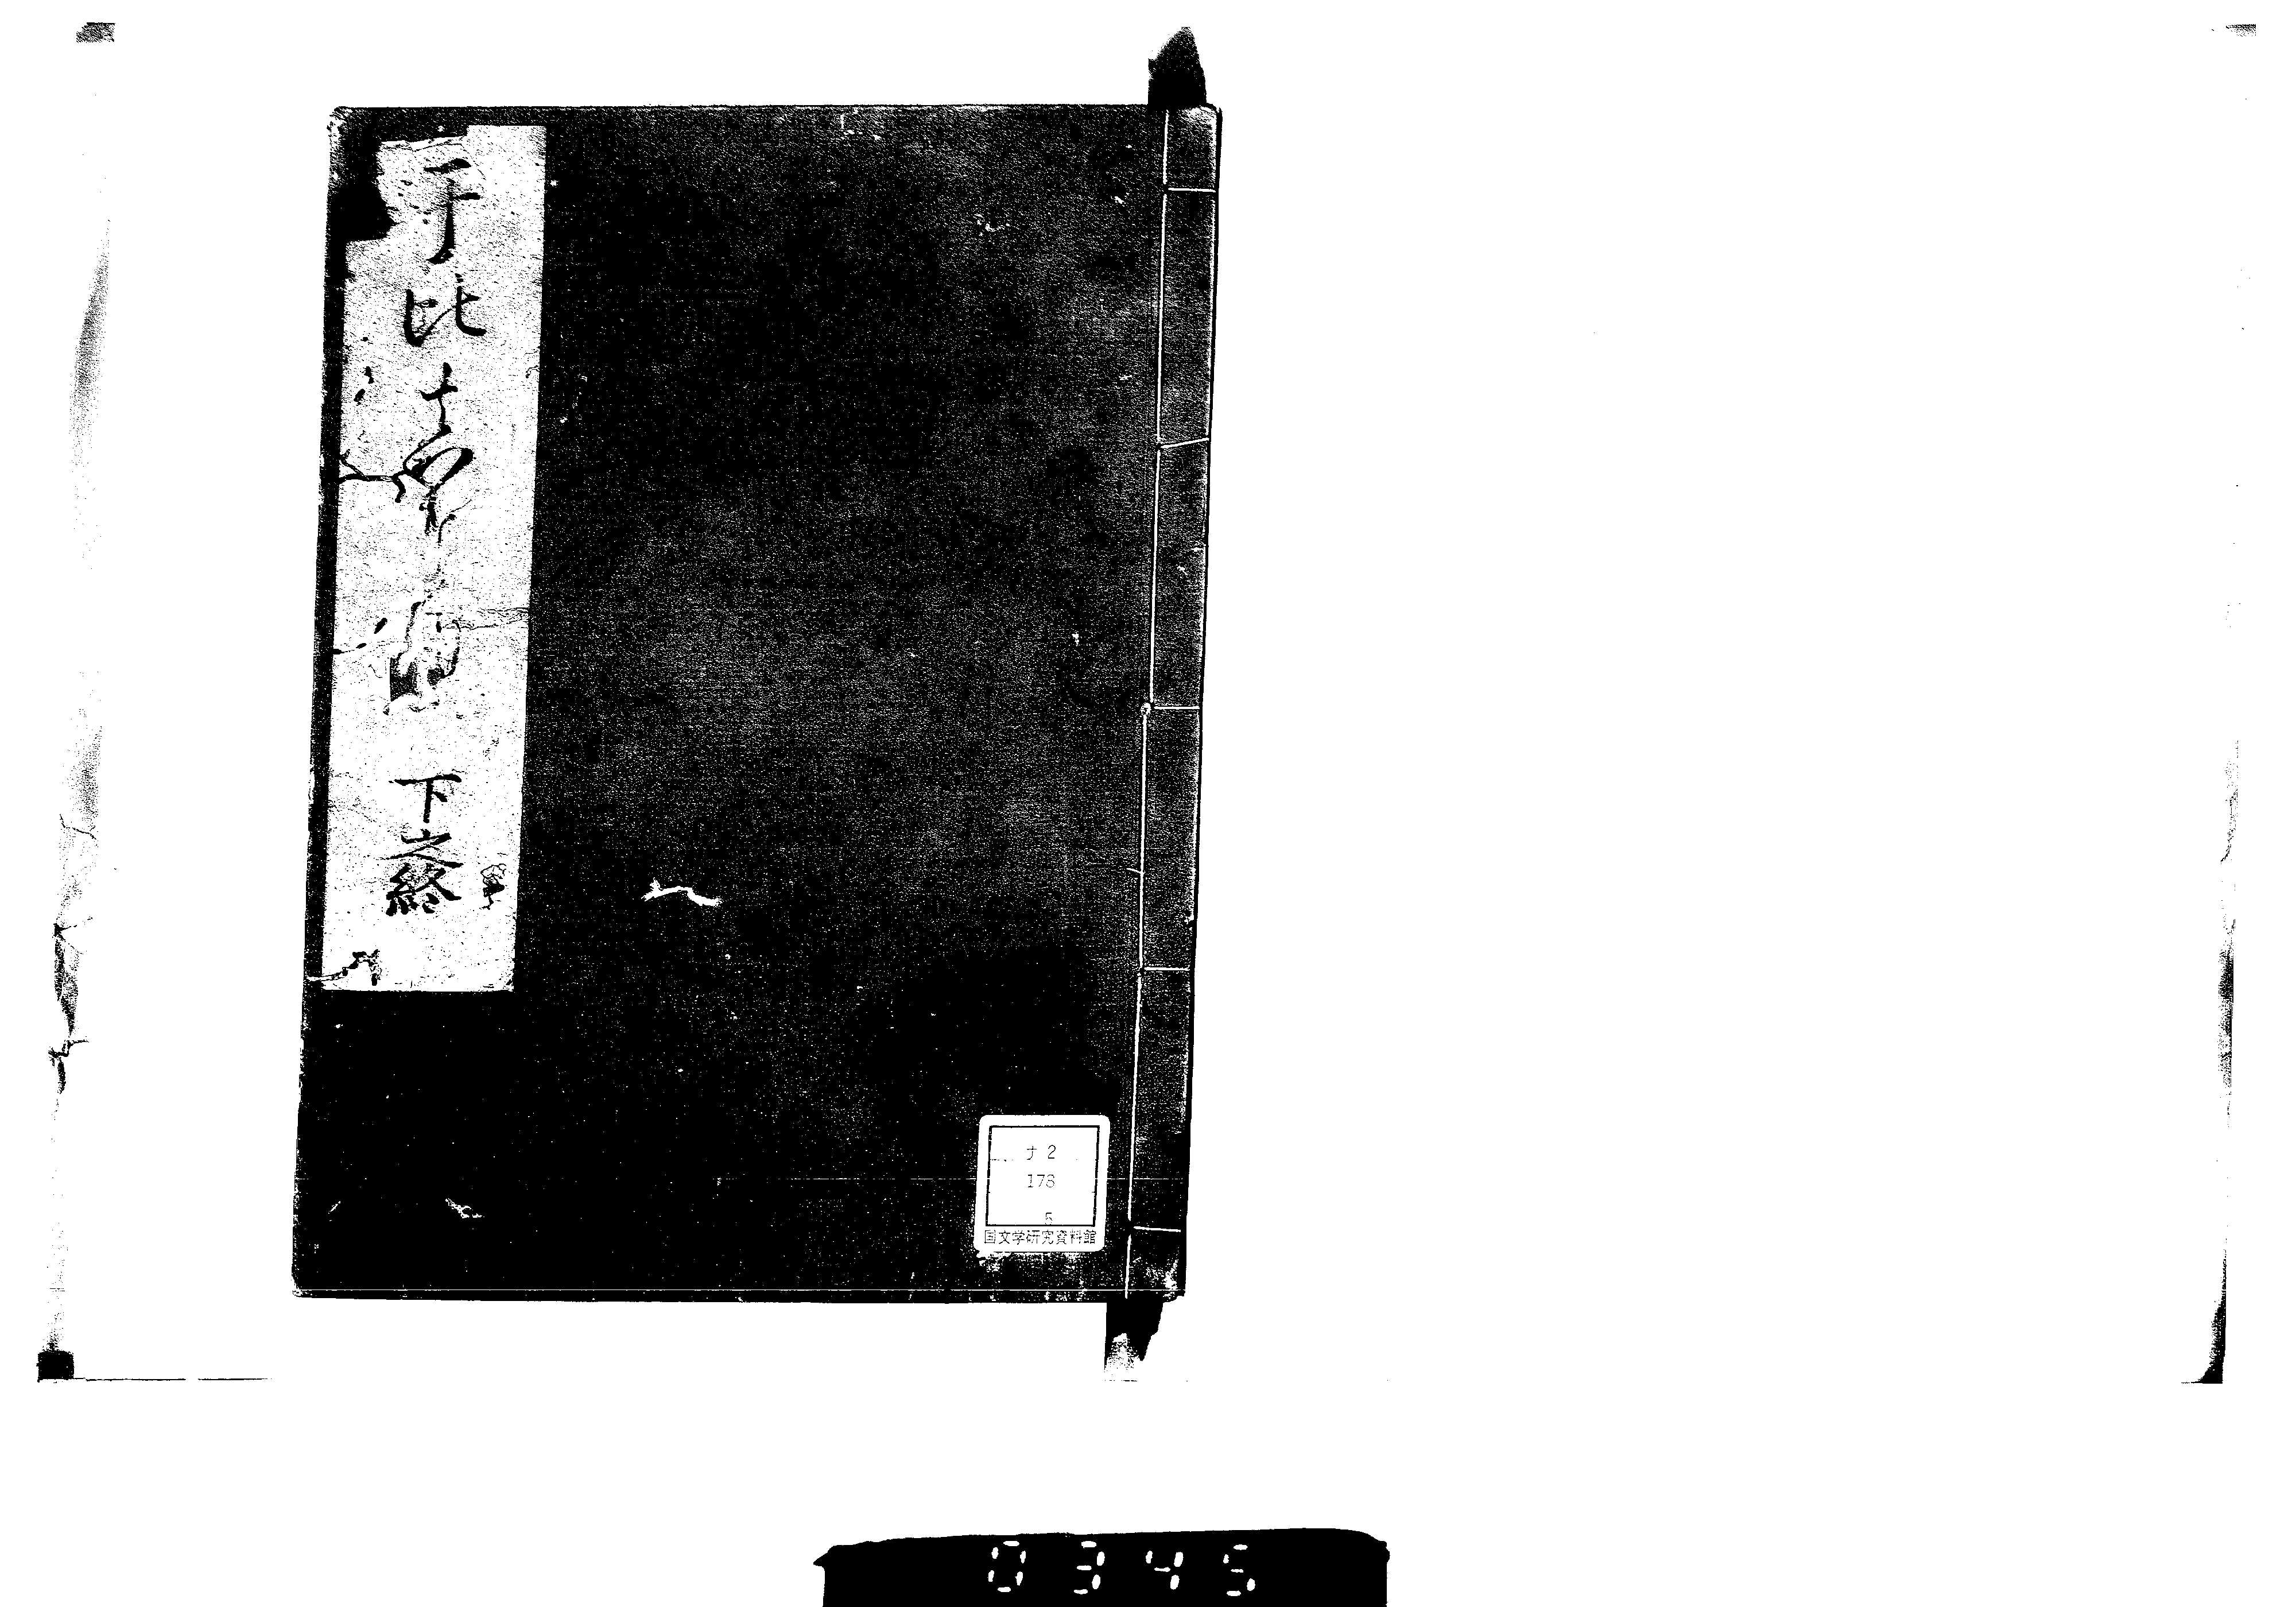 于比志 下之終
ナ2
178
5
国文学研究資料館
0345